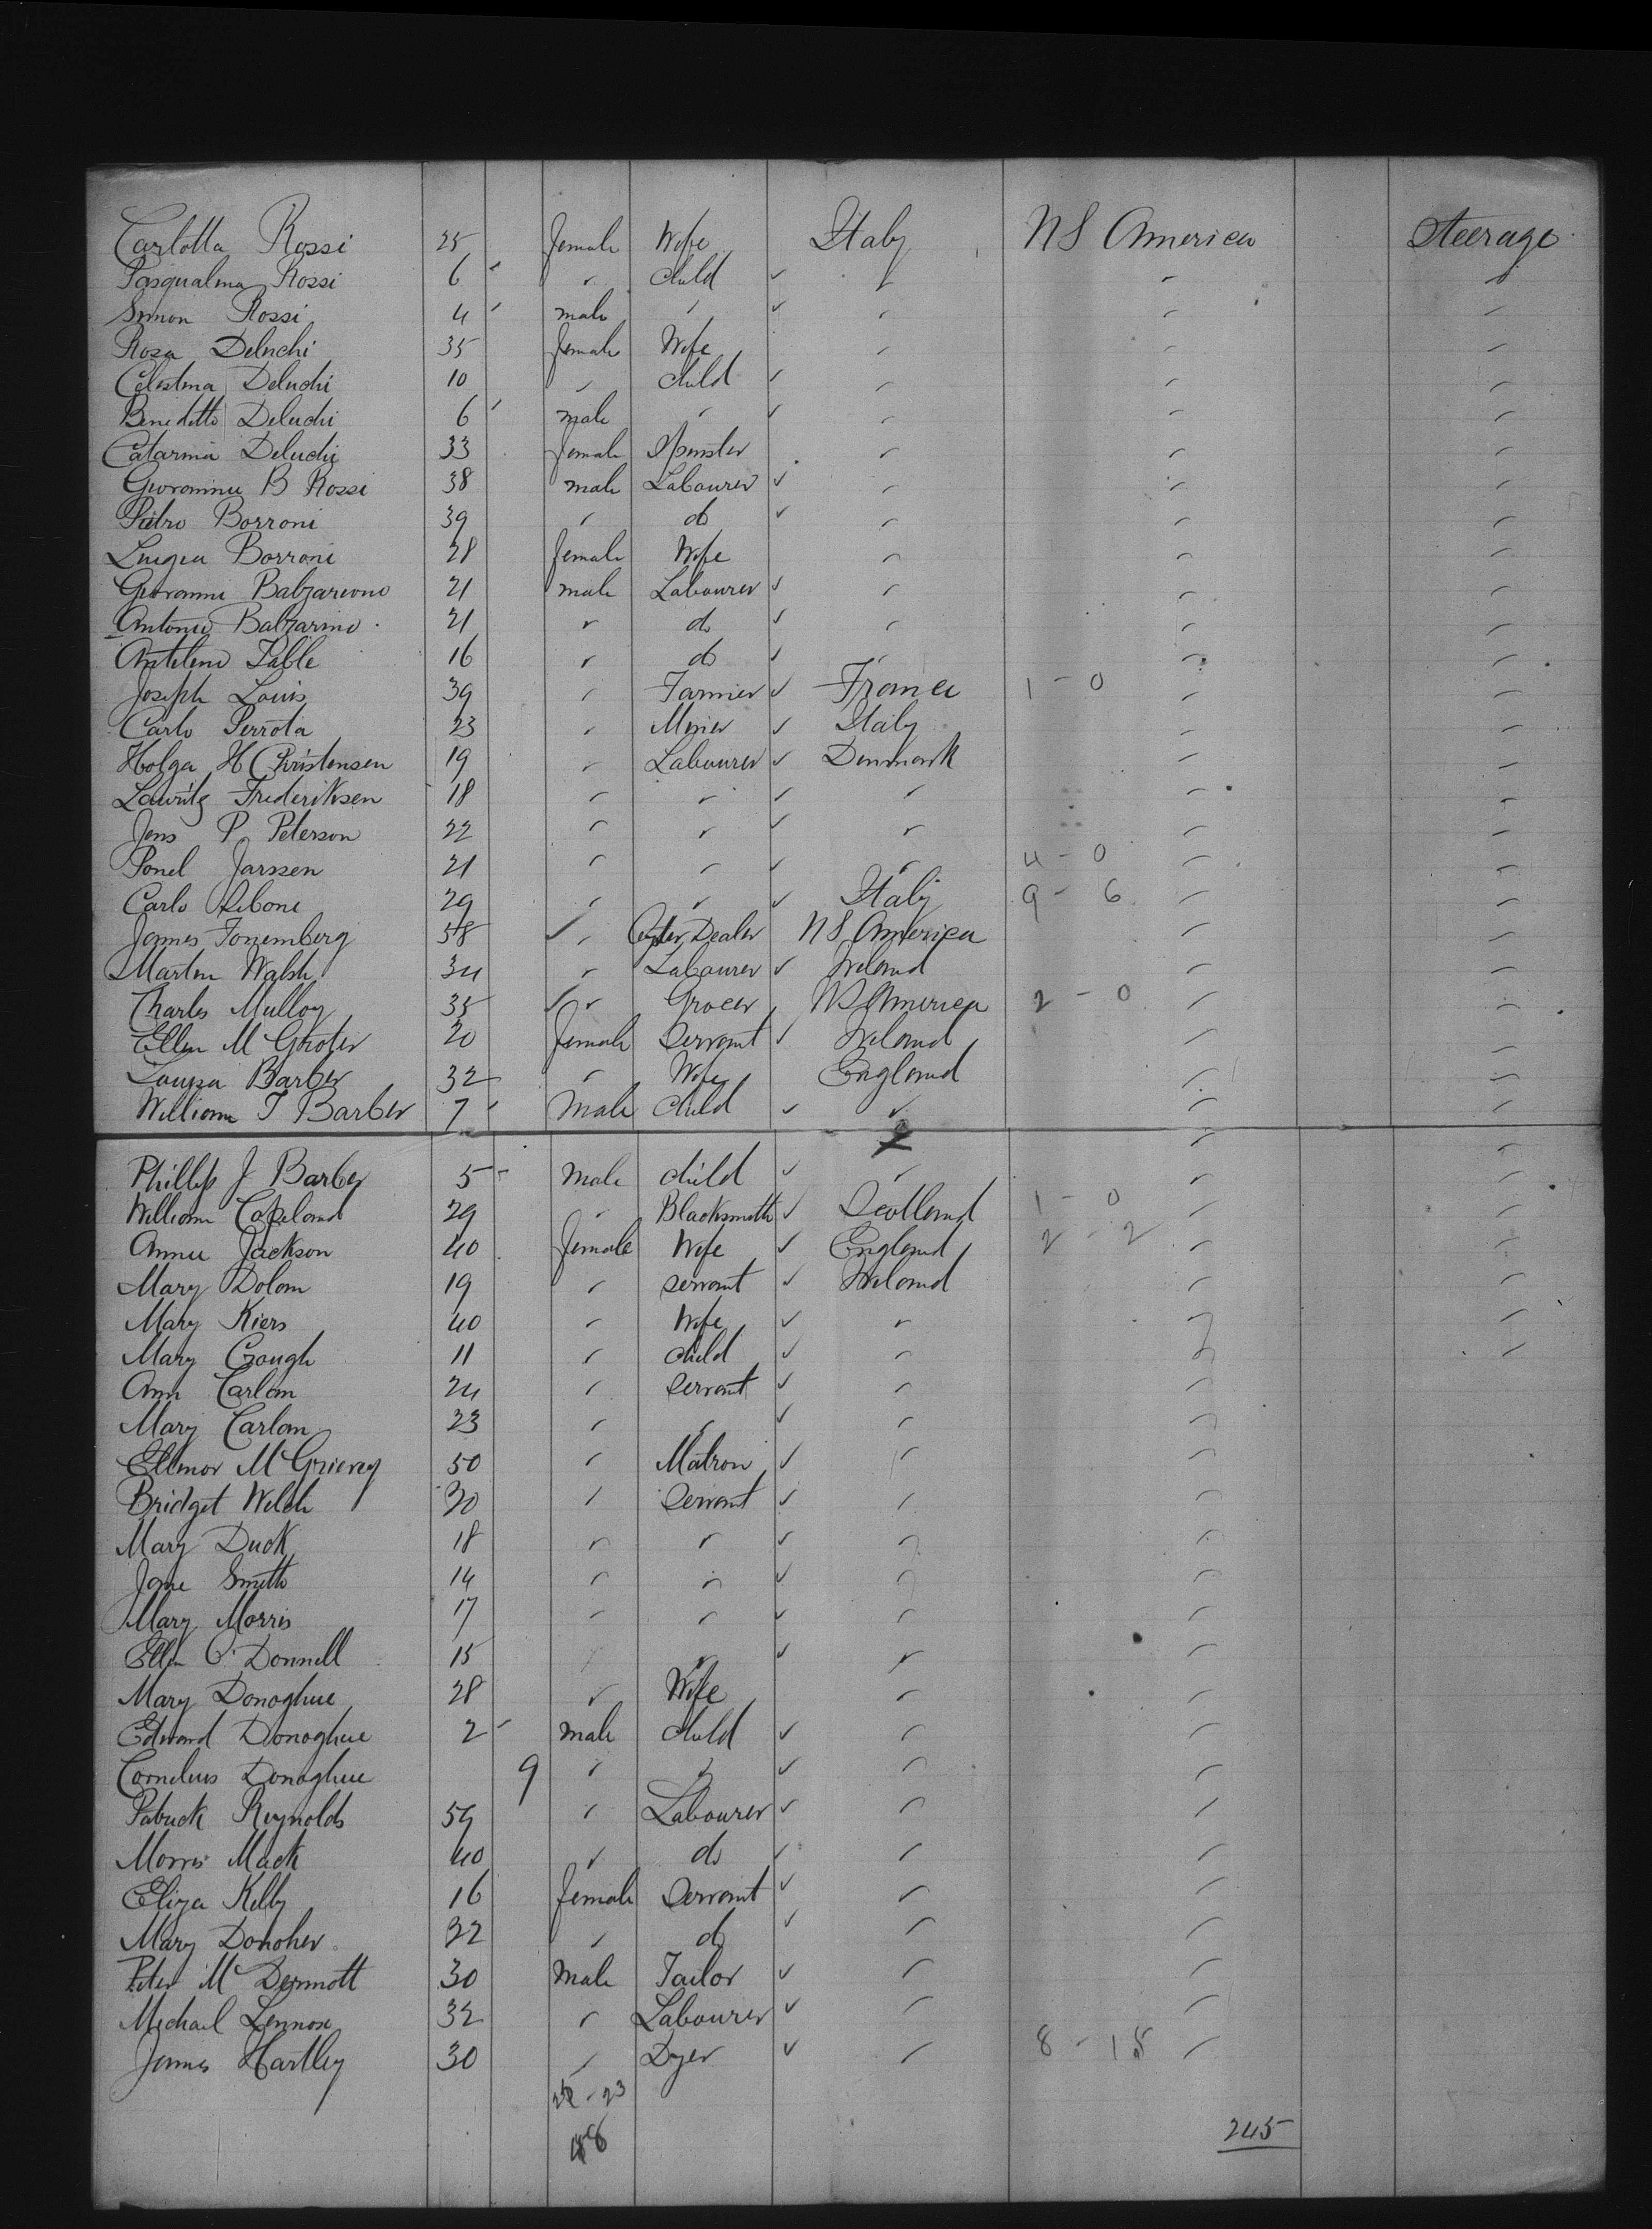 Carlotta Rossi 25 female Wife Italy U S America Steerage
Pasqualina Rossi 6 " child " " "
Simon Rossi 4 male " " " "
Rosa Deluchi 35 female Wife " " "
Celestina Deluchi 10 " child " " "
Benedetto Deluchi 6 male " " " "
Catarina Deluchi 33 female Spinster " " "
B Rossi 38 male Labourer " " "
Pietro Borroni 39 " do " " "
Luigia Borroni 28 female Wife " " "
Giovanni 21 male Labourer " " "
Antonio Balzarino 21 " do " " "
16 " do " " "
Joseph Louis 39 " Farmer France 1 - 0 " "
Carlo Perrota 23 " Miner Italy " "
Holga H Christensen 19 " Labourer Denmark " "
Lauritz Frederiksen 18 " " " " "
Jens P Peterson 22 " " " " "
Ponel Jarssen 21 " " " 4 - 0 " "
Carlo 29 " " Italy 9 - 6 " "
James 58 " Dealer U S America " "
Martin Walsh 34 " Labourer Ireland " "
Charles Mulloy 35 " Grocer U S America 2 - 0 " "
Ellen 20 female Servant Ireland " "
Louisa Barber 32 " Wife England " "
William T Barber 7 Male child " " "
Phillip J Barber 5 Male child " " "
William Copeland 29 " Blacksmith Scotland 1 - 0 " "
Annie Jackson 40 female Wife England 2 - 2 " "
Mary Dolan 19 " servant Ireland " "
Mary Kiers 40 " Wife " " "
Mary Gough 11 " child " " "
Ann Carlan 24 " Servant " "
Mary Carlan 23 " " " "
Ellenor McGrievey 50 " Matron " "
Bridget Welch 30 " Servant " "
Mary Duck 18 " " " "
Jane Smith 14 " " " "
Mary Morris 17 " " " "
Ellen O'Donnell 15 " " " "
Mary Donoghue 28 " Wife " "
Edward Donoghue 2 male child " "
Cornelius Donoghue 9 " " " "
Patrick Reynolds 59 " Labourer " "
Morris Mack 40 " do " "
Eliza Kelly 16 female Servant " "
Mary Donoher 32 " do " "
Peter McDermott 30 Male Tailor " "
Michael Lennox 32 " Labourer " "
James Hartley 30 " Dyer " 8 - 18 "
245